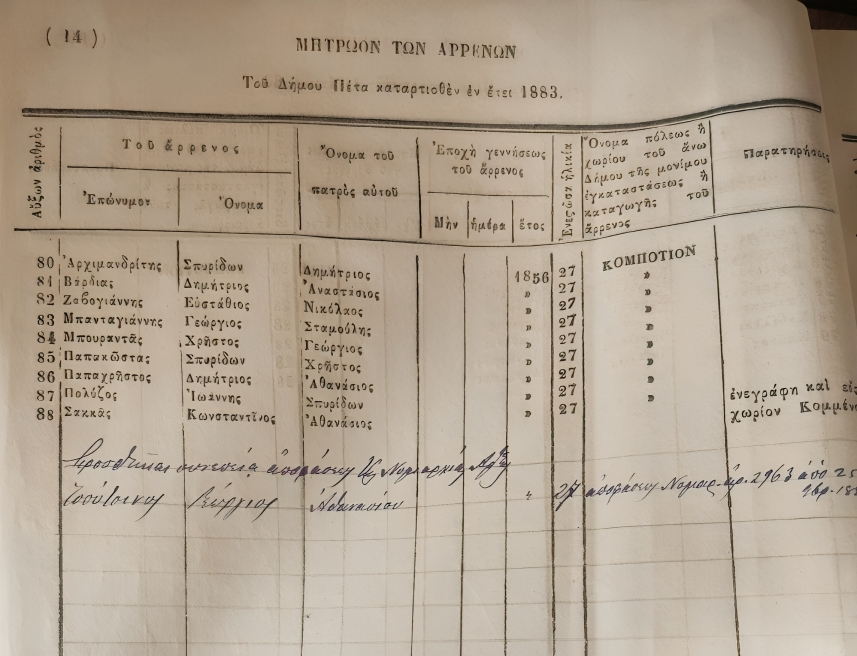 ( 14 )
ΜΗΤΡΩΟΝ ΤΩΝ ΑΡΡΕΝΩΝ
Τοῦ Δήμου Πέτα καταρτισθὲν ἐν ἔτει 1883.
Αὔξων ἀριθμὸς
Τοῦ ἄρρενος
Ἐπώνυμον
Ὄνομα
Ὄνομα τοῦ
πατρὸς αὐτοῦ
Ἐποχὴ γεννήσεως
τοῦ ἄρρενος
Μὴν
ἡμέρα
ἔτος
ἡλικία
Ὄνομα πόλεως ἢ
χωρίου τοῦ ἄνω
Δήμου τῆς μονίμου
ἐγκαταστάσεως ἢ
καταγωγῆς τοῦ
ἄρρενος
Παρατηρήσεις
80 Ἀρχιμανδρίτης Σπυρίδων Δημήτριος 1856 27 ΚΟΜΠΟΤΙΟΝ
81 Βάρδιας Δημήτριος Ἀναστάσιος » 27 »
82 Ζαβογιάννης Εὐστάθιος Νικόλαος » 27 »
83 Μπανταγιάννης Γεώργιος Σταμούλης » 27 »
84 Μπουραντᾶς Χρῆστος Γεώργιος » 27 »
85 Παπακῶστας Σπυρίδων Χρῆστος » 27 »
86 Παπαχρῆστος Δημήτριος Ἀθανάσιος » 27 »
87 Πολύζος Ἰωάννης Σπυρίδων » 27 » ἐνεγράφη καὶ εἰς
88 Σακκᾶς Κωνσταντῖνος Ἀθανάσιος » 27 χωρίον Κομμένο
συνεπείᾳ ἀποφάσεως τῆς Νομαρχίας
Ἀθανασίου " 27 ἀποφάσεως Νομαρ. ἀρ. 2963 ἀπὸ 25